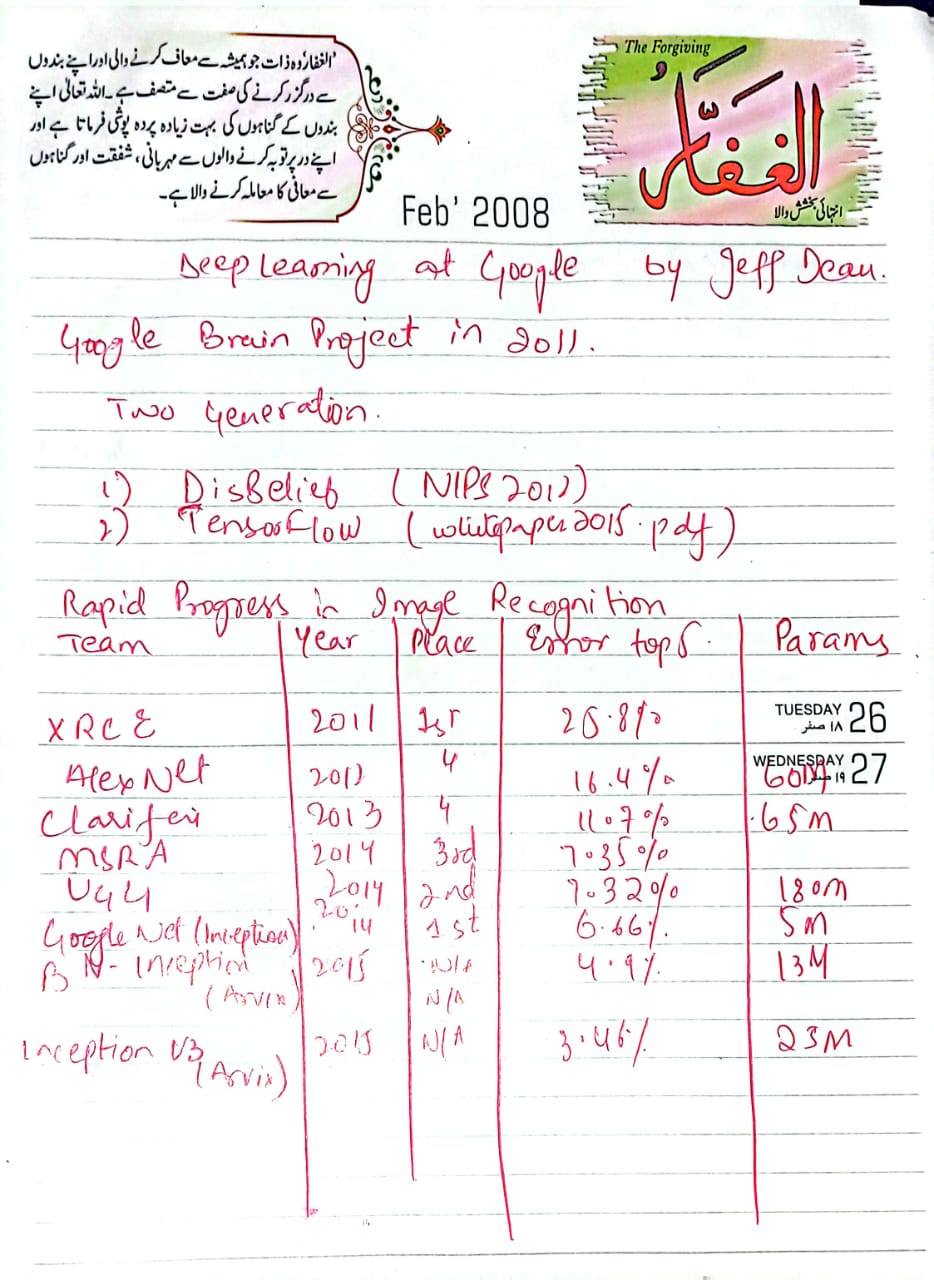 'الغفار' وہ ذات جو ہمیشہ سے معاف کرنے والی اور اپنے بندوں
سے درگزر کرنے کی صفت سے متصف ہے۔ اللہ تعالیٰ اپنے
بندوں کے گناہوں کی بہت زیادہ پردہ پوشی فرماتا ہے اور
اپنے در پر توبہ کرنے والوں سے مہربانی، شفقت اور گناہوں
سے معافی کا معاملہ کرنے والا ہے۔
The Forgiving
الغفّارُ
انتہائی بخشش والا
Feb' 2008
Deep Learning at Google by Jeff Dean.
Google Brain Project in 2011.
Two Generation.
1) DisBelief (NIPS 2012)
2) TensorFlow (whitepaper2015.pdf)
Rapid Progress in Image Recognition
Team Year Place Error top5. Params
XRCE 2011 1st 25.8%
TUESDAY 26
۱۸ صفر
AlexNet 2012 " 16.4% 60M
WEDNESDAY 27
۱۹ صفر
Clarifai 2013 " 11.7% 65M
MSRA 2014 3rd 7.35%
VGG 2014 2nd 7.32% 180M
Google Net (Inception) 2014 1st 6.66% 5M
BN-Inception 2015 N/A 4.9% 13M
(Arvix) N/A
Inception V3 2015 N/A 3.46% 23M
(Arvix)